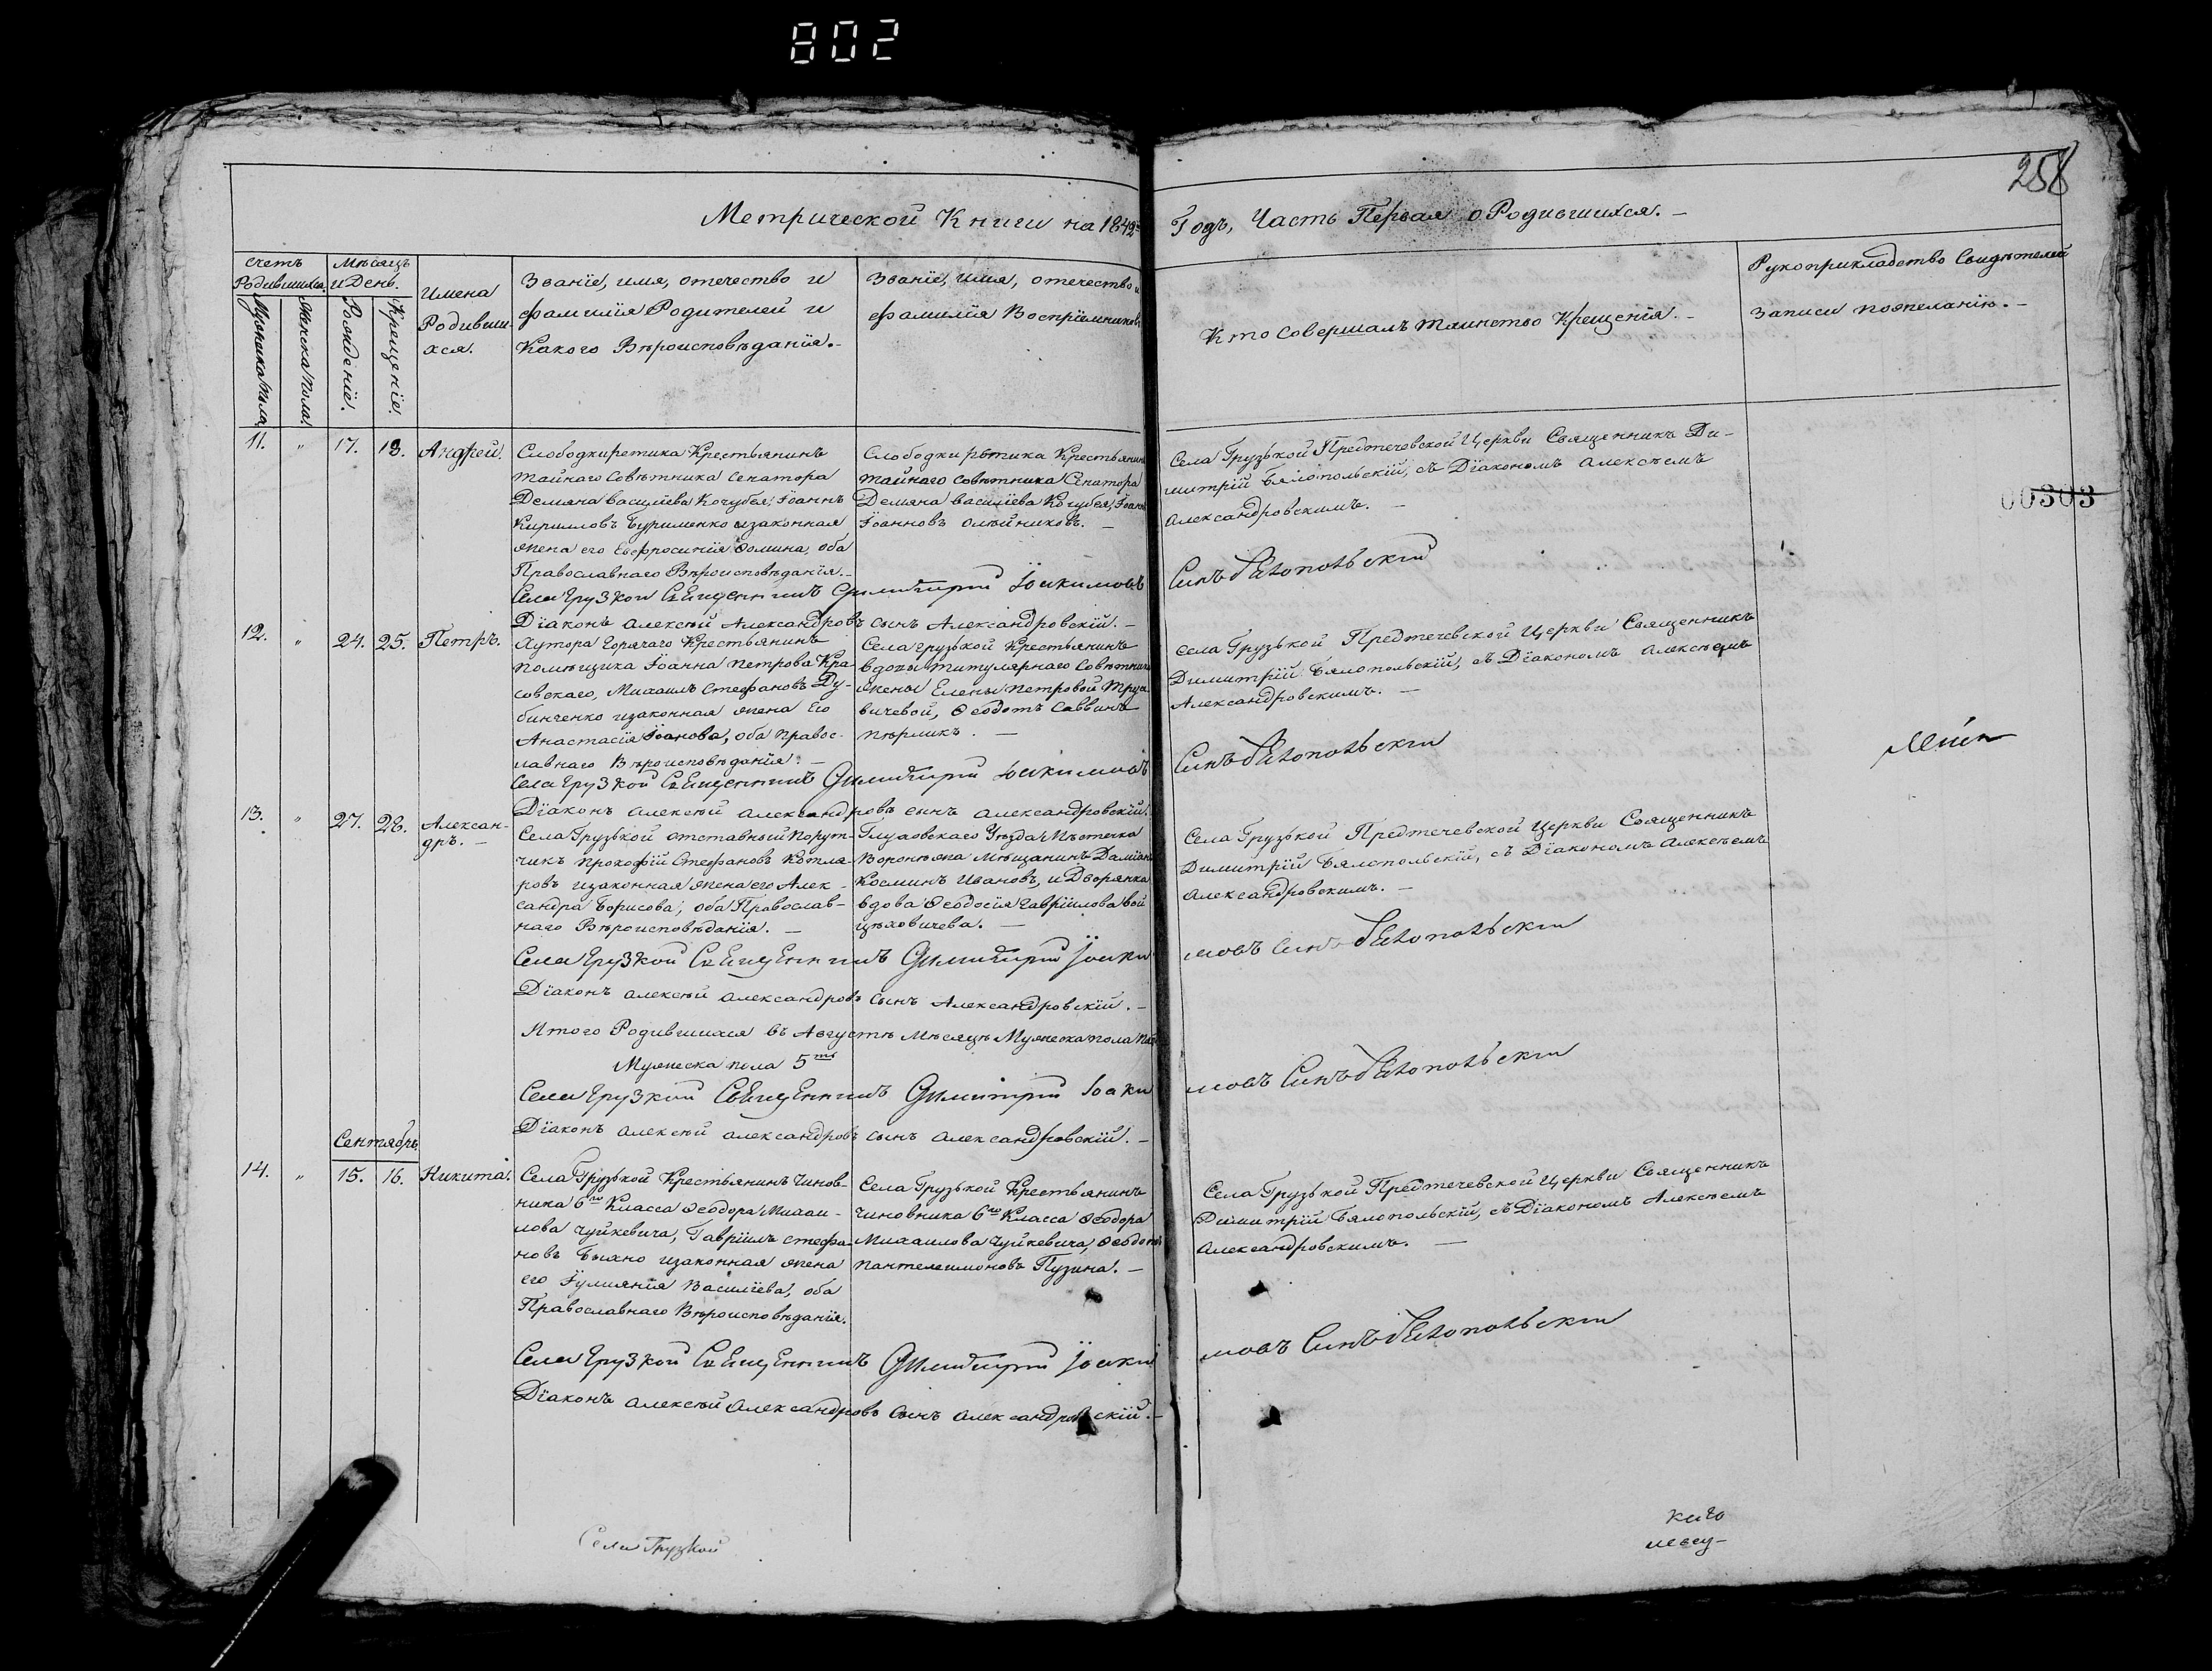 802
258
Метрической Книги на 1842й Годъ, Часть Первая о Родившихся. –
Счетъ Родившихся.
Мѣсяцъ и День.
Мужеска пола.
Женска пола.
Рожденіе.
Крещеніе.
Имена
Родивши-
хся.
Званіе, имя, отечество и
фамилія Родителей и
Какого Вѣроисповѣданія. –
Званіе, имя, отечество и
фамилія Воспріемниковъ
Кто совершалъ таинство Крещенія. –
Рукоприкладство Свидѣтелей
записи по желанію. –
11. " 17. 18. Андрей.
Слободки ретика Крестьянинъ
тайнаго Совѣтника Сенатора
Демяна Василіева Кочубея, Іоаннъ
Кирилловъ Бурименко и законная
жена его Евфросинія Фомина, оба
Православнаго Вѣроисповѣданія. –
Слободки ретика Крестьянинъ
тайнаго совѣтника Сенатора
Демяна Василіева Кочубея, Іоаннъ
Іоанновъ Олѣйниковъ. –
Села Грузькой Предтечевской Церкви Священникъ Ди-
митрій Бѧлопольскій, съ Діакономъ Алексѣемъ
Александровскимъ. –
00303
Села Грузкой Священникъ Димитрій Іоакимовъ Синъ Бѣлопольскій
Діаконъ Алексѣй Александровъ сынъ Александровскій. –
12. " 24. 25. Петръ.
Хутора Горячаго Крестьянинъ
помѣщика Іоанна Петрова Кра-
совскаго, Михаилъ Стефановъ Ду-
бинченко и законная жена Его
Анастасія Іоанова, оба правос-
лавнаго Вѣроисповѣданія. –
Села Грузькой Крестьянинъ
вдовы титулярнаго Совѣтника
жены Елены Петровой
вичевой, Ѳеодотъ Саввинъ
Села Грузькой Предтечевской Церкви Священникъ
Димитрій Бѧлопольскій, съ Діакономъ Алексѣемъ
Александровскимъ. –
Села Грузкой Священникъ Димитрій Іоакимовъ Синъ Бѣлопольскій
Діаконъ Алексѣй Александровъ сынъ Александровскій.
13. " 27. 28. Алексан-
дръ. –
Села Грузькой отставный Порут-
чикъ Прокофій Стефановъ Котля-
ровъ и законная жена его Алек-
сандра Борисова, оба Православ-
наго Вѣроисповѣданія. –
Глуховскаго Уѣзда Мѣстечка
Воронѣжа Мѣщанинъ Даміанъ
Косминъ Ивановъ, и Дворянка
вдова Ѳеодосія Гавріилова Вой
цѣховичева. –
Села Грузькой Предтечевской Церкви Священникъ
Димитрій Бѧлопольскій, съ Діакономъ Алексѣемъ
Александровскимъ. –
Села Грузкой Священникъ Димитрій Іоаки мовъ Синъ Бѣлопольскій
Діаконъ Алексѣй Александровъ Сынъ Александровскій. –
Итого Родившихся въ Августѣ Мѣсяцѣ Мужеска пола
Мужеска пола 5ть
Села Грузкой Священникъ Димитрій Іоаки мовъ Синъ Бѣлопольскій
Діаконъ Алексѣй Александровъ сынъ Александровскій. –
Сентябрь.
14. " 15. 16. Никита.
Села Грузькой Крестьянинъ Чинов-
ника 6го Класса Ѳеодора Михаи-
лова Чуйкевича, Гавріилъ Стефа-
новъ Бияно и законная жена
его Іулиянія Василіева, оба
Православнаго Вѣроисповѣданія.
Села Грузькой Крестьянинъ
Чиновника 6го Класса Ѳеодора
Михаилова Чуйкевича, Ѳеодотъ
Пантелеимоновъ Пузина. –
Села Грузькой Предтечевской Церкви Священникъ
Димитрій Бѧлопольскій, съ Діакономъ Алексѣемъ
Александровскимъ. –
Села Грузкой Священникъ Димитрій Іоаки мовъ Синъ Бѣлопольскій
Діаконъ Алексѣй Александровъ Сынъ Александровскій. –
Села Грузкой